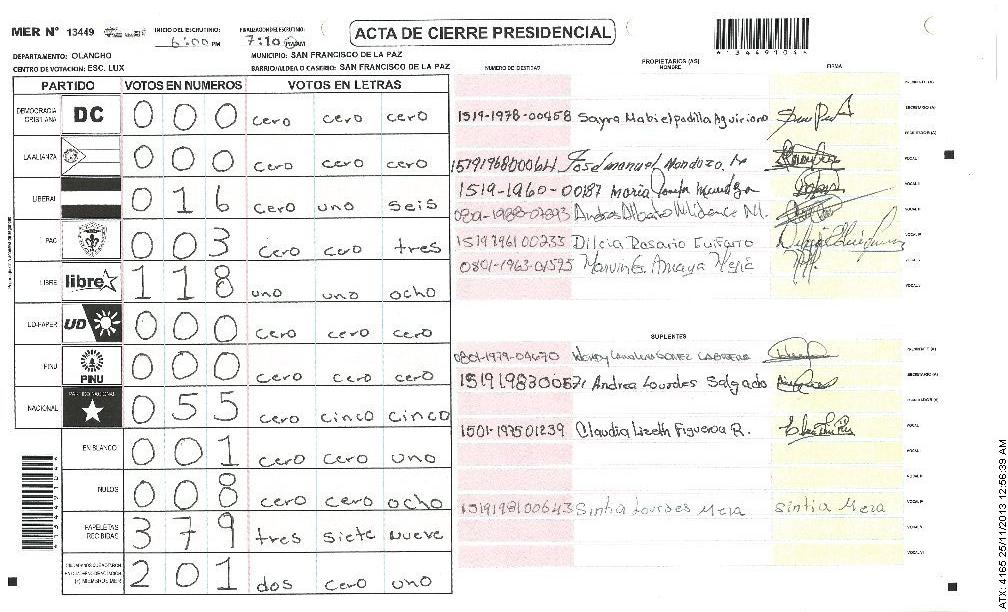 MER N° 13449
INICIO DEL ESCRUTINIO: 6:00 PM
FINALIZACION DEL ESCRUTINIO: 7:10 PM/AM
ACTA DE CIERRE PRESIDENCIAL
DEPARTAMENTO: OLANCHO
MUNICIPIO: SAN FRANCISCO DE LA PAZ
CENTRO DE VOTACION: ESC. LUX
BARRIO/ALDEA O CASERIO: SAN FRANCISCO DE LA PAZ
PARTIDO VOTOS EN NUMEROS VOTOS EN LETRAS
DEMOCRACIA CRISTIANA DC 0 0 0 cero cero cero
LA ALIANZA 0 0 0 cero cero cero
LIBERAL 0 1 6 cero uno seis
PAC 0 0 3 cero cero tres
LIBRE libre 1 1 8 uno uno ocho
UD-FAPER UD 0 0 0 cero cero cero
PINU PINU 0 0 0 cero cero cero
NACIONAL PARTIDO NACIONAL 0 5 5 cero cinco cinco
EN BLANCO 0 0 1 cero cero uno
NULOS 0 0 8 cero cero ocho
PAPELETAS RECIBIDAS 3 7 9 tres siete nueve
(+) MIEMBROS MER 2 0 1 dos cero uno
NUMERO DE IDENTIDAD PROPIETARIOS (AS) NOMBRE FIRMA
SECRETARIO (A)
1519-1978-00458 Sayra Mabiel Padilla
1519196800064 Jose manuel Mendoza
1519-1960-00187 Maria
Andres Alberto
Dilcia Rosario
0801-1963-01595 Amaya Mejia
SUPLENTES
0801-1979-04670 GOMEZ CABRERA
Andrea Lourdes Salgado
1501-197501239 Claudia Lizeth Figueroa R.
1519198100643 Sintia Lourdes Meza sintia Meza
ATX: 4165 25/11/2013 12:56:39 AM